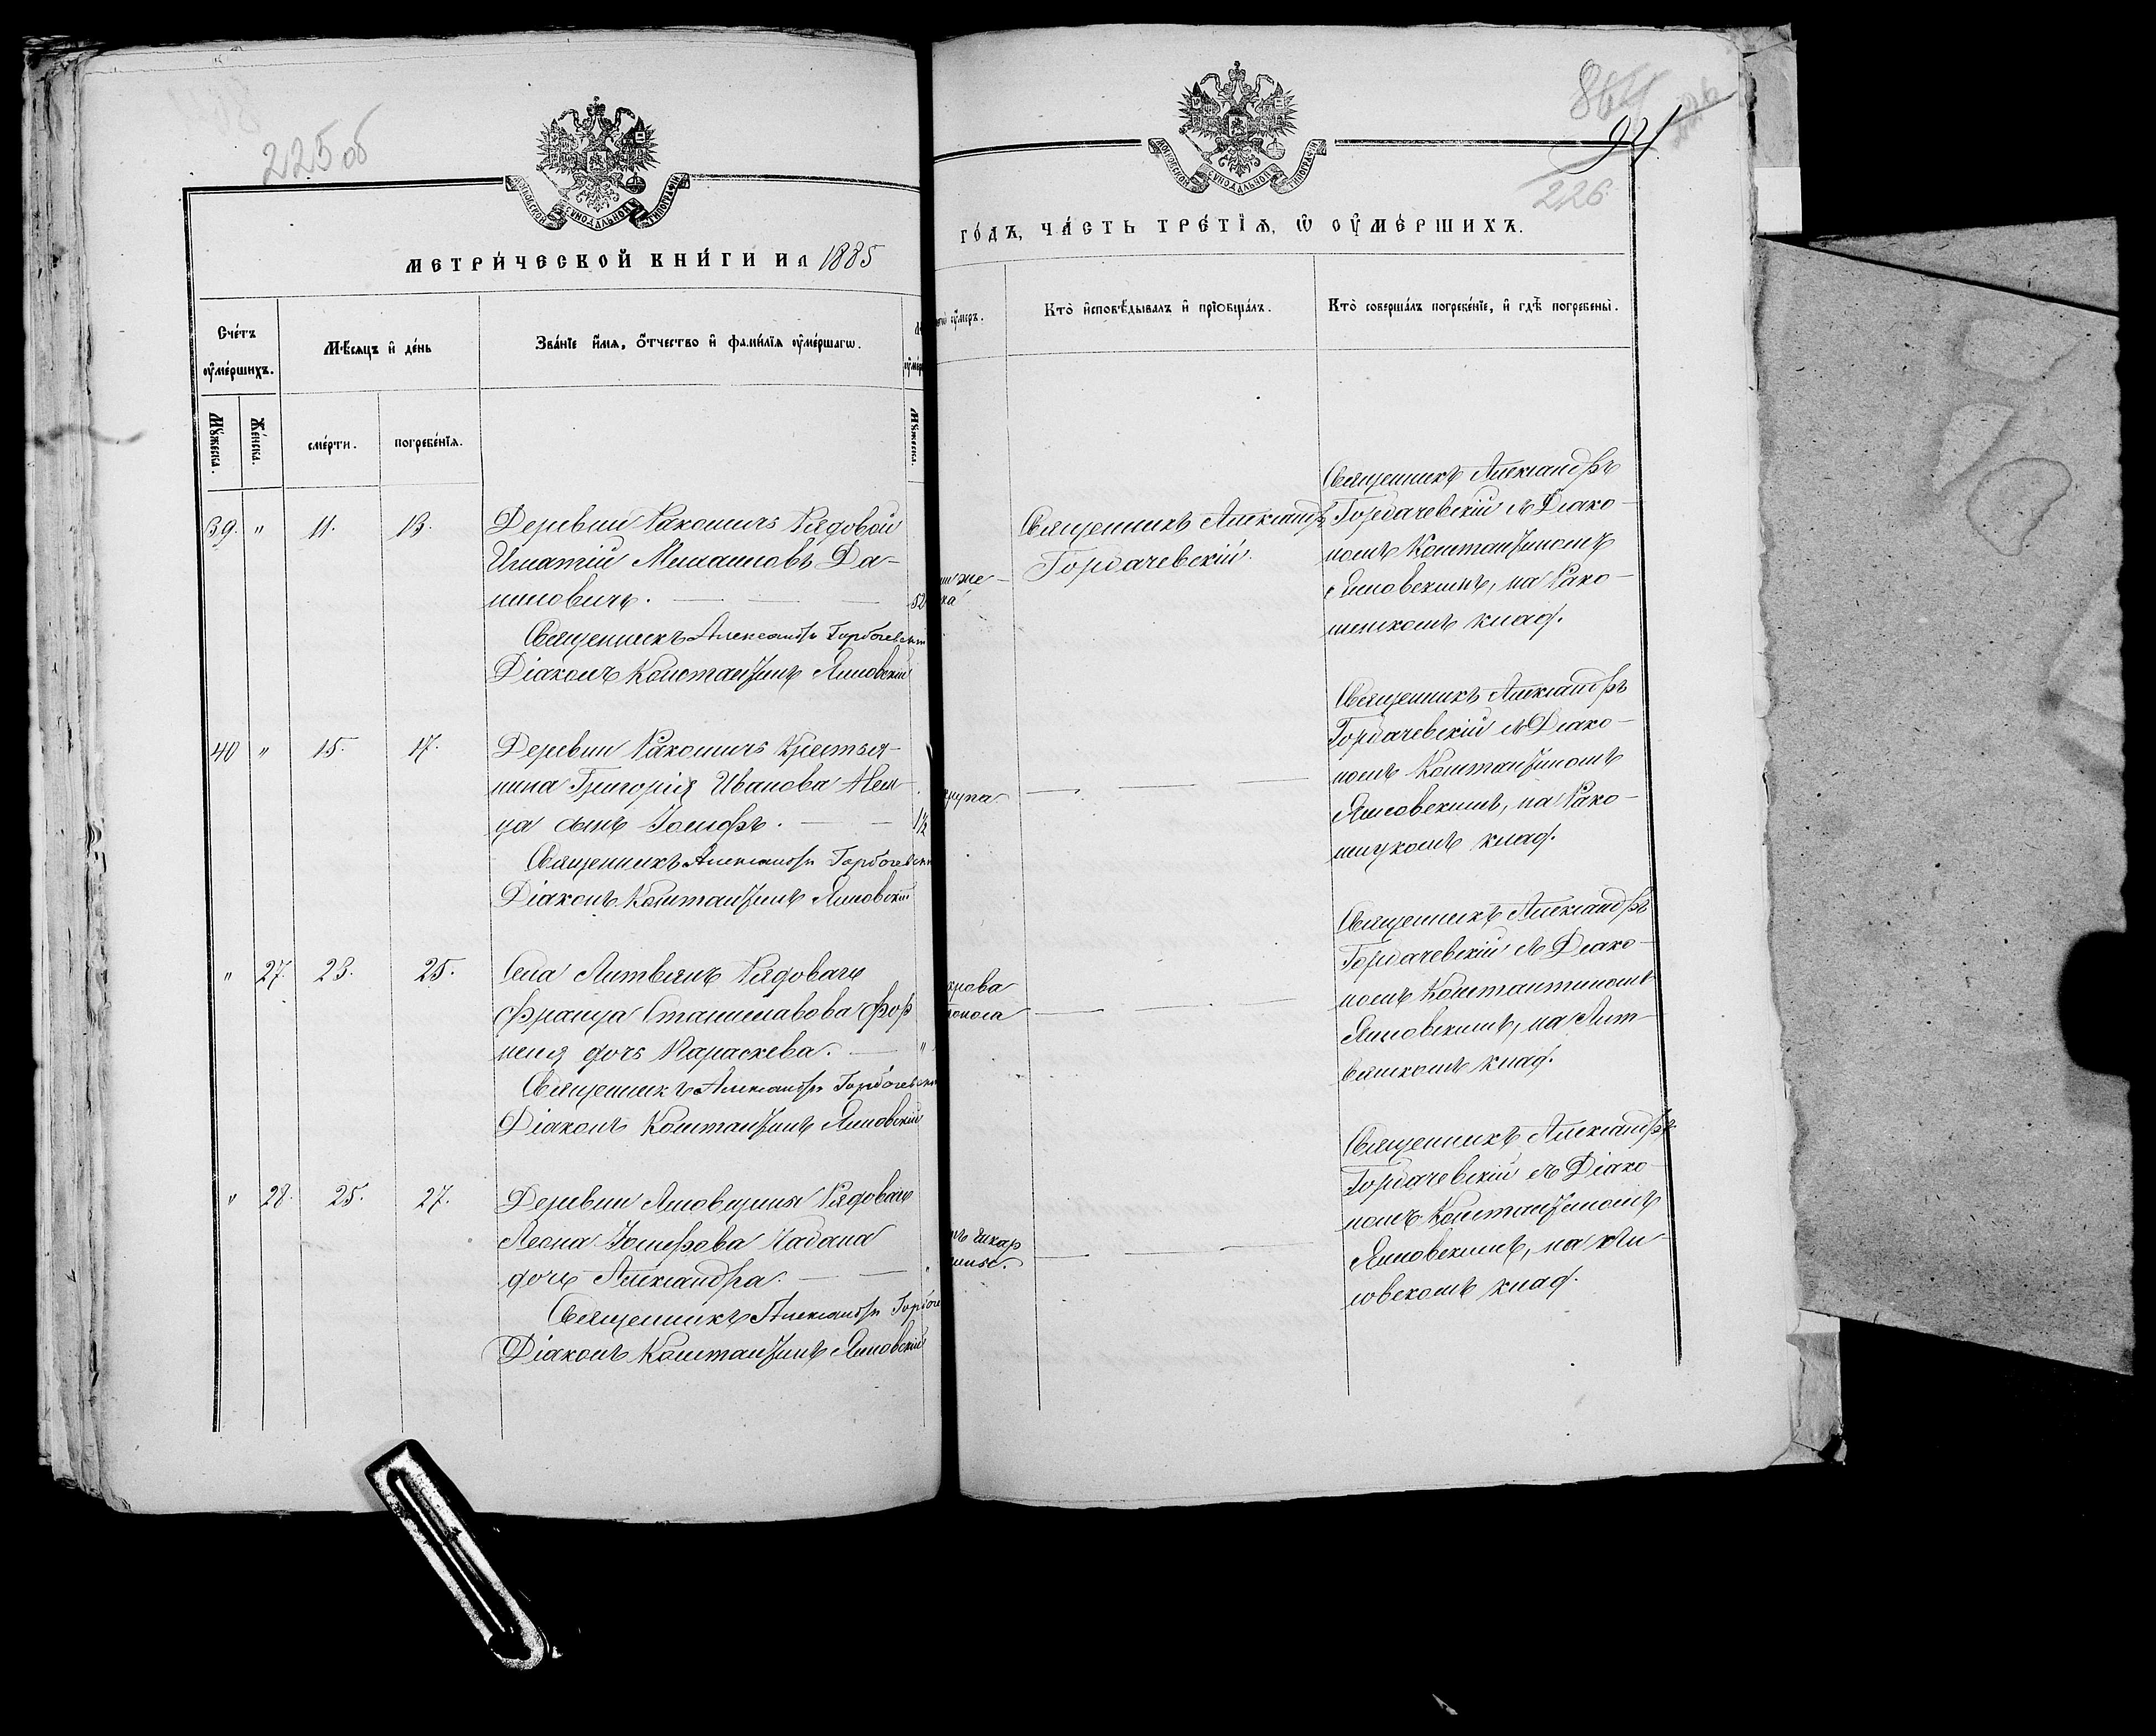 225 об
МОСКОВСКОЙ СѴНОДАЛЬНОЙ ТИПОГРАФІИ
МЕТРИ́ЧЕСКОЙ КНИ́ГИ НА 1885
Сче́тъ оу҆ме́ршихъ.
Мꙋ́жеска.
Же́нска.
Мѣ́сяцъ и҆ де́нь
сме́рти.
погребе́нїѧ.
Зва́нїе и҆́мѧ, ѻ҆́тчество и҆ фами́лїѧ оу҆ме́ршагѡ.
Мꙋ́жеска.
39. " 11. 13.
Деревни Ракошичъ Рядовой
Игнатій Михаиловъ Да-
ниловичъ. — — — 52
Священникъ Александръ Горбачевскій
Діаконъ Константинъ Яновскій
40 " 15. 17.
Деревни Ракошичъ Крестья-
нина Григорія Иванова
ца сынъ Іосифъ. — — 1½
Священникъ Александръ Горбачевскій
Діаконъ Константинъ Яновскій
" 27. 23. 25.
Села Литвянъ Рядоваго
Франца Станиславова
дочь Параскева. — "
Священникъ Александръ Горбачевскій
Діаконъ Константинъ Яновскій
" 28. 25. 27.
Деревни Рядоваго
Леона Іосифова
дочь Александра. — — "
Священникъ Александръ Горбаче
Діаконъ Константинъ Яновскій
94
226
МОСКОВСКОЙ СѴНОДАЛЬНОЙ ТИПОГРАФІИ
ГО́ДЪ, ЧА́СТЬ ТРЕ́ТЇѦ, Ѡ҆ ОУ҆МЕ́РШИХЪ.
оу҆́меръ.
Кто̀ и҆сповѣ́дывалъ и҆ прїобща́лъ.
Кто̀ соверша́лъ погребе́нїе, и҆ гдѣ̀ погребены̀.
Священникъ Александръ
Горбачевскій.
Священникъ Александръ
Горбачевскій съ Діако-
номъ Константиномъ
Яновскимъ, на Рако-
шицкомъ клад.
— —
Священникъ Александръ
Горбачевскій съ Діако-
номъ Константиномъ
Яновскимъ, на Рако-
шицкомъ клад.
крова
поноса
— — —
Священникъ Александръ
Горбачевскій съ Діако-
номъ Константиномъ
Яновскимъ, на Лит-
вянскомъ клад.
— — —
Священникъ Александръ
Горбачевскій съ Діако-
номъ Константиномъ
Яновскимъ, на
клад.